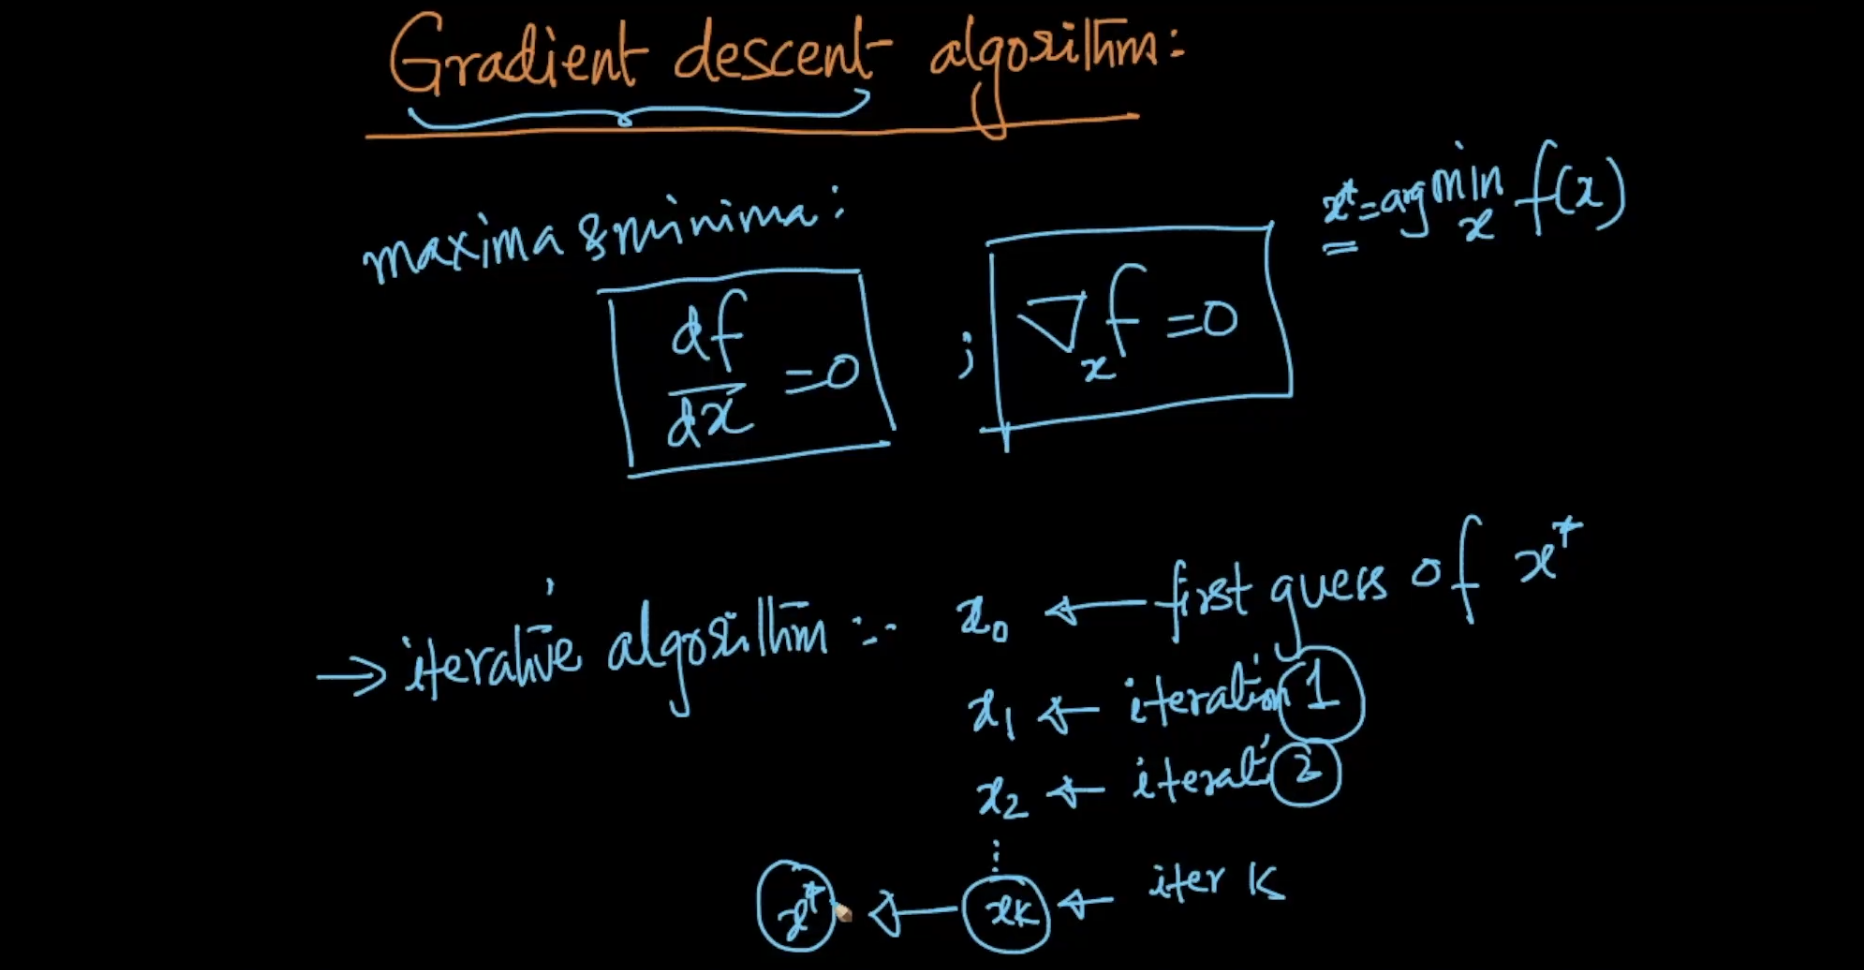 Gradient descent algorithm:
x* = arg min f(x)
x
maxima & minima:
df/dx = 0 ; ∇x f = 0
→ iterative algorithm :- x0 ← first guess of x*
x1 ← iteration 1
x2 ← iterati 2
⋮
x* ← xk ← iter K